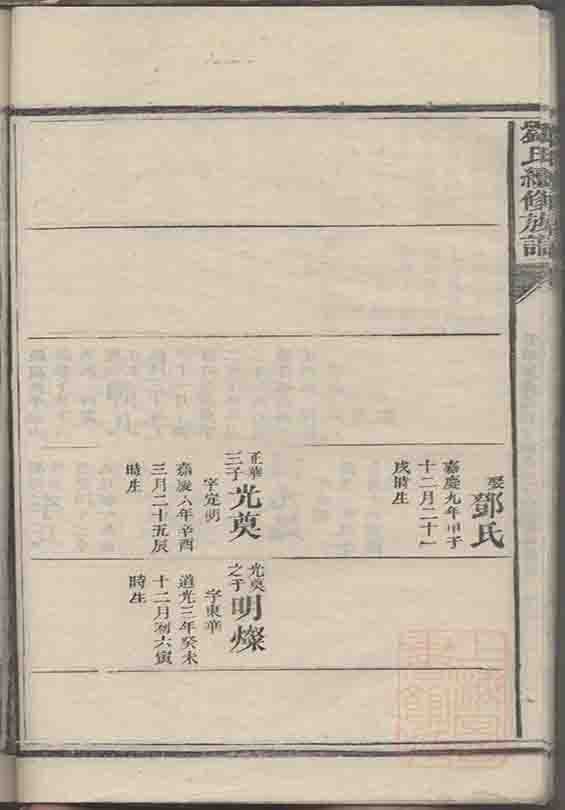 劉氏續修族譜
娶鄧氏
嘉慶九年甲子
十二月二十一
戌時生
正華
三子光奠
字定明
嘉慶六年辛酉
三月二十五辰
時生
光奠
之子明燦
字東華
道光三年癸未
十二月初六寅
時生